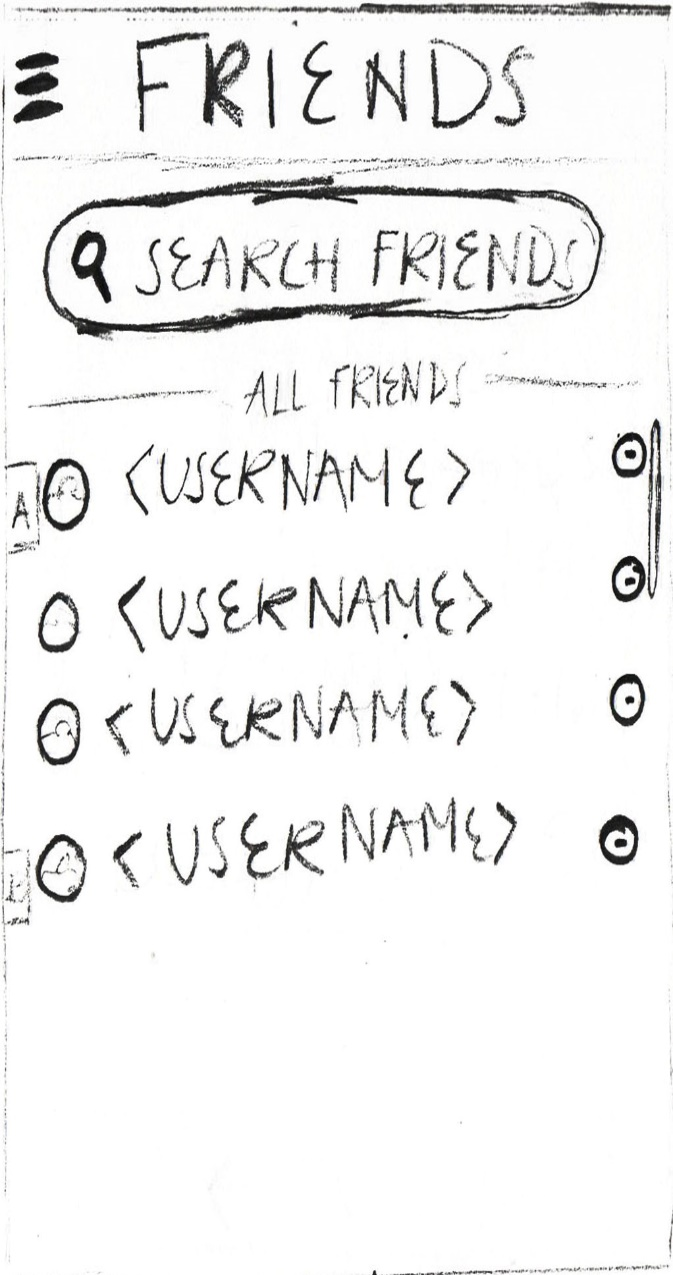 FRIENDS
SEARCH FRIENDS
ALL FRIENDS
A <USERNAME>
<USERNAME>
<USERNAME>
<USERNAME>